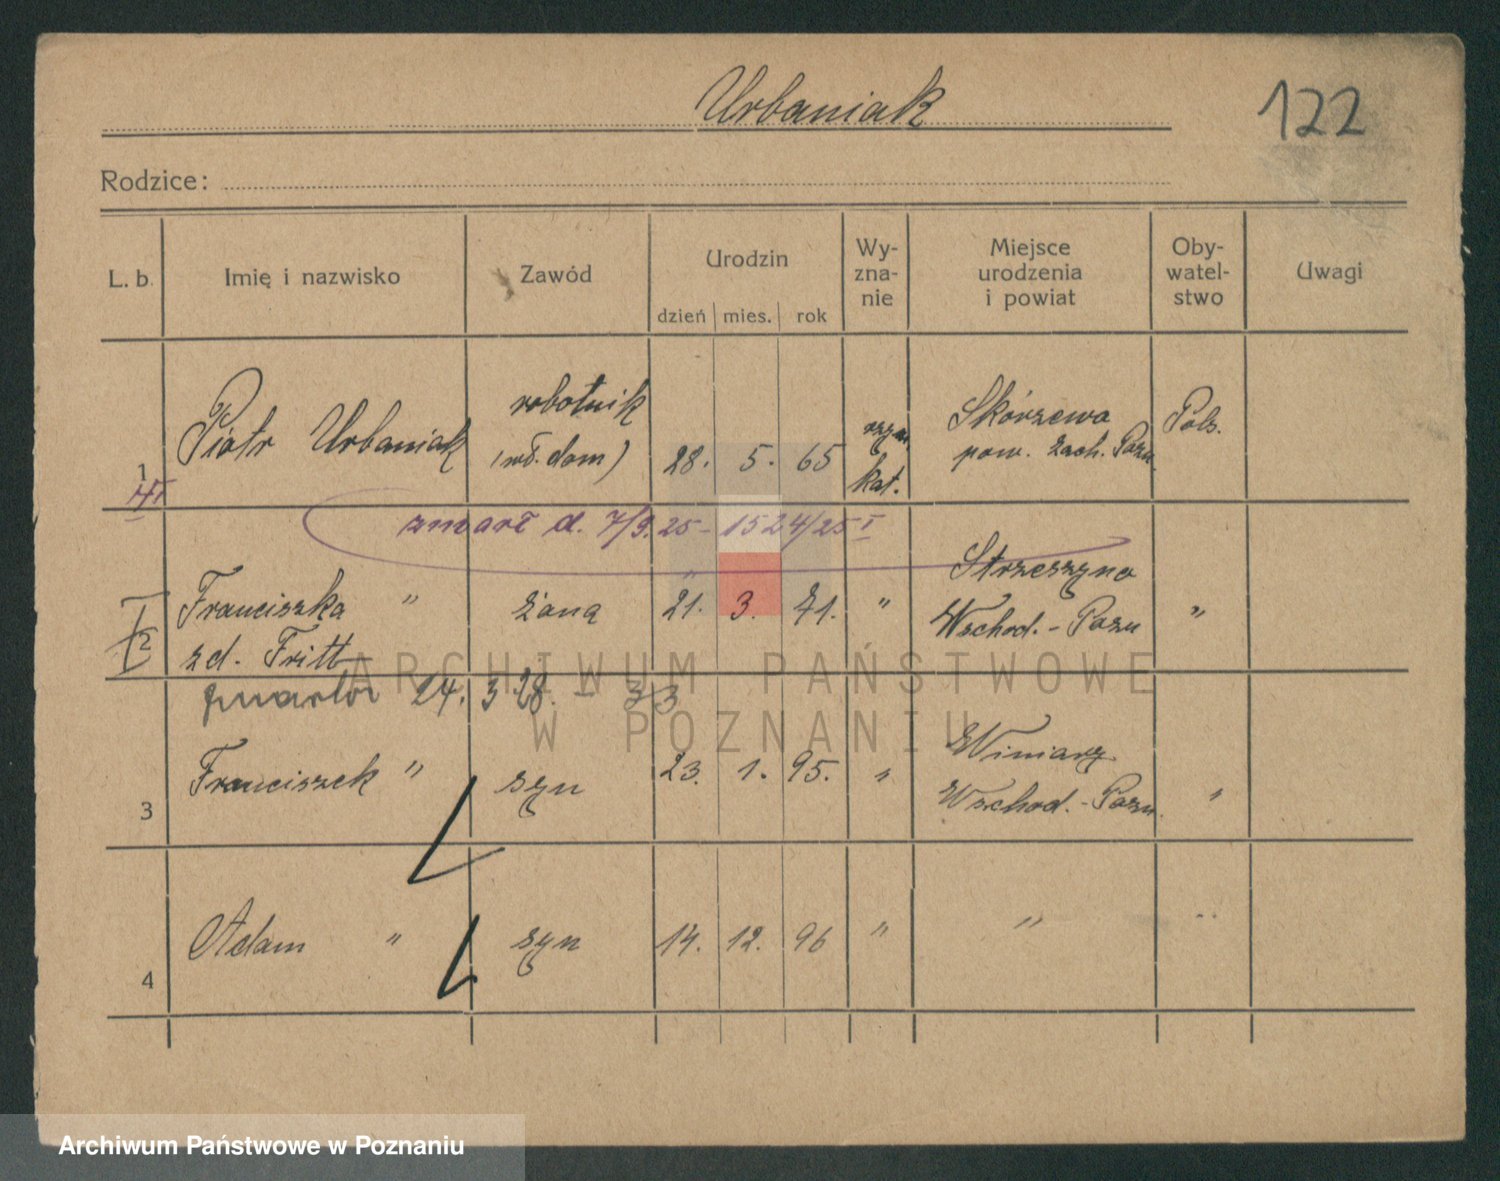 Urbaniak
122
Rodzice:
L. b.
Imię i nazwisko
Zawód
Urodzin
dzień mies. rok
Wy-
zna-
nie
Miejsce
urodzenia
i powiat
Oby-
watel-
stwo
Uwagi
1
Piotr Urbaniak
robotnik
(wł. dom)
28. 5. 65
rzym.
kat.
Skórzewo
pow. Zach. Pozn.
Pols.
zmarł d. 7/9. 25 - 1524/25 I
2
Franciszka "
zd. Fritt
żona
21. 3. 71.
"
Strzeszyno
Wschod. - Pozn
"
zmarła 24. 3 28. - 33
3
Franciszek "
syn
23. 1. 95.
"
Winiary
Wschod. - Pozn.
"
4
Adam "
syn
14. 12. 96
"
"
"
ARCHIWUM PAŃSTWOWE
W POZNANIU
Archiwum Państwowe w Poznaniu